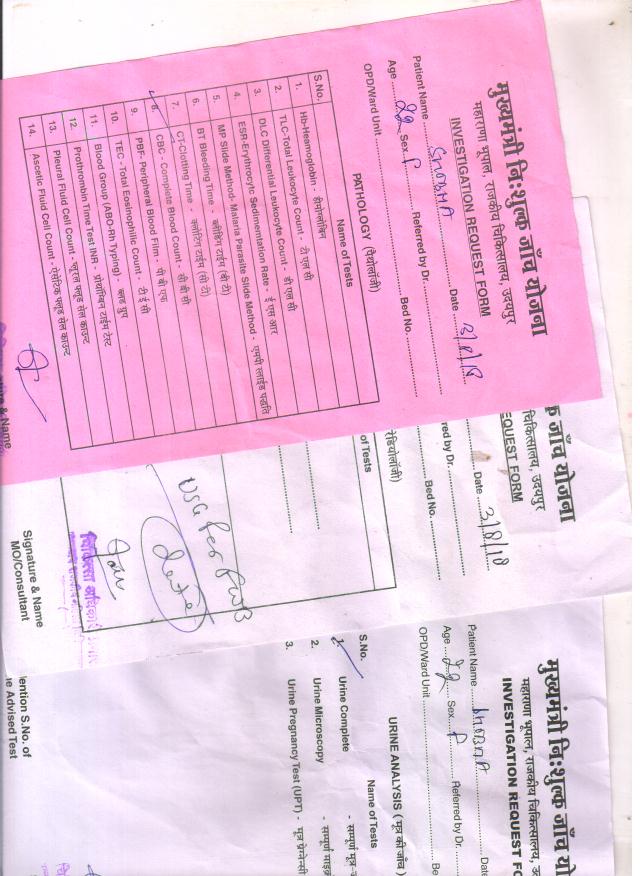 मुख्यमंत्री नि:शुल्क जाँच योजना
महाराणा भूपाल, राजकीय चिकित्सालय, उदयपुर
INVESTIGATION REQUEST FORM
Patient Name SHOBHA Date 3/8/18
Age 22 Sex F Referred by Dr.
OPD/Ward Unit Bed No.
PATHOLOGY (पैथोलॉजी)
S.No. Name of Tests
1. Hb-Heamoglobin - हीमोग्लोबिन
2. TLC-Total Leukocyte Count - टी एल सी
3. DLC Differential Leukocyte Count - डी एल सी
4. ESR-Erythrocytc Sedimentation Rate - ई एस आर
5. MP Slide Method- Malaria Parasite Slide Method - एमपी स्लाईड पद्धति
6. BT Bleeding Time - ब्लीडिंग टाईम (बी टी)
7. CT-Clotting Time - क्लोटिंग टाईम (सी टी)
8. CBC - Complete Blood Count - सी बी सी
9. PBF- Peripheral Blood Film - पी बी एफ
10. TEC - Total Eosinophilic Count - टी ई सी
11. Blood Group (ABO-Rh Typing) - ब्लड ग्रुप
12. Prothrombin Time Test INR - प्रोथ्रोम्बिन टाईम टेस्ट
13. Pleural Fluid Cell Count - प्लूरल फ्लूड सेल काउन्ट
14. Ascetic Fluid Cell Count - ऐसेटिक फ्लूड सेल काउन्ट
& Name
जाँच योजना
चिकित्सालय, उदयपुर
EQUEST FORM
Date 3/8/18
red by Dr.
Bed No.
रेडियोलॉजी)
of Tests
USG for FWB
चिकित्सा अधिकारी
Signature & Name
MO/Consultant
मुख्यमंत्री नि:शुल्क जाँच यो
महाराणा भूपाल, राजकीय चिकित्सालय, उ
INVESTIGATION REQUEST FO
Patient Name SHOBHA Date
Age 22 Sex F Referred by Dr.
OPD/Ward Unit Be
URINE ANALYSIS (मूत्र की जांच)
S.No. Name of Tests
1. Urine Complete - सम्पूर्ण मूत्र
2. Urine Microscopy - सम्पूर्ण माइक्र
3. Urine Pregnancy Test (UPT) - मूत्र प्रेग्नेन्सी
ention S.No. of
e Advised Test